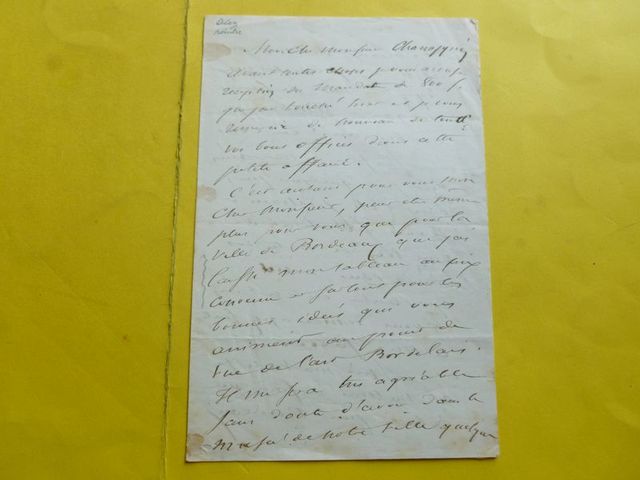 Mon cher Monsieur
avant toutes choses je vous accuse
réception du mandat de 800 f.
que j'ai touché hier et je vous
remercie de nouveau de tous
vos bons offices dans cette
petite affaire.
C'est autant pour vous mon
cher Monsieur, peut être même
plus pour vous que pour la
ville de Bordeaux que j'ai
laissé mon tableau au prix
convenu et surtout pour les
bonnes idées qui vous
animent au point de
vue de l'art Bordelais.
Il me sera très agréable
sans doute d'avoir dans le
musée de notre ville quelque